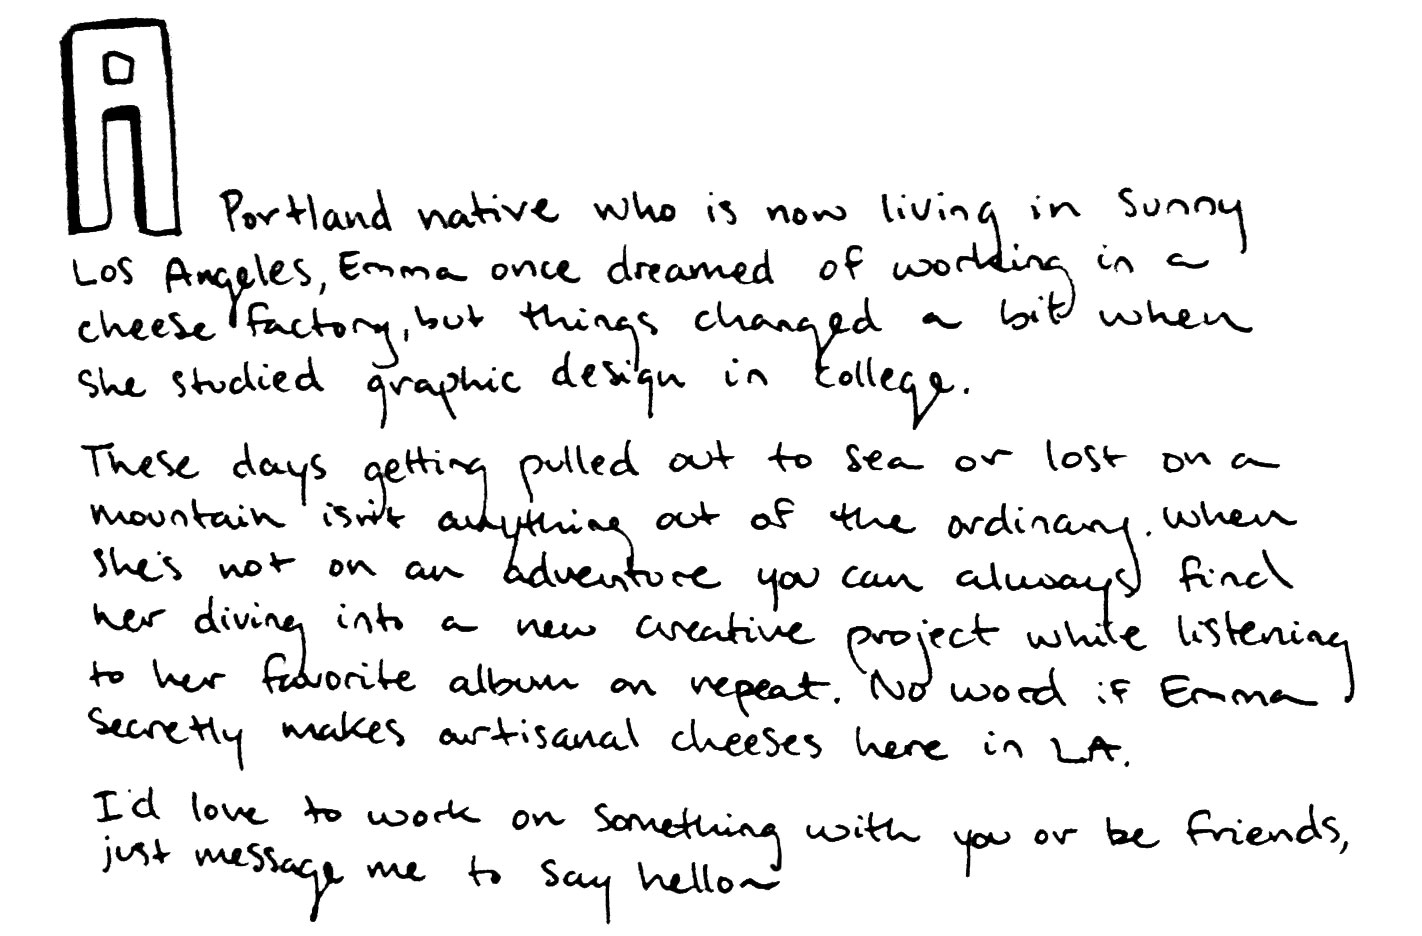 A Portland native who is now living in sunny
Los Angeles, Emma once dreamed of working in a
cheese factory, but things changed a bit when
she studied graphic design in college.
These days getting pulled out to sea or lost on a
mountain isn't anything out of the ordinary. When
she's not on an adventure you can always find
her diving into a new creative project while listening
to her favorite album on repeat. No word if Emma
secretly makes artisanal cheeses here in LA.
I'd love to work on something with you or be friends,
just message me to say hello~